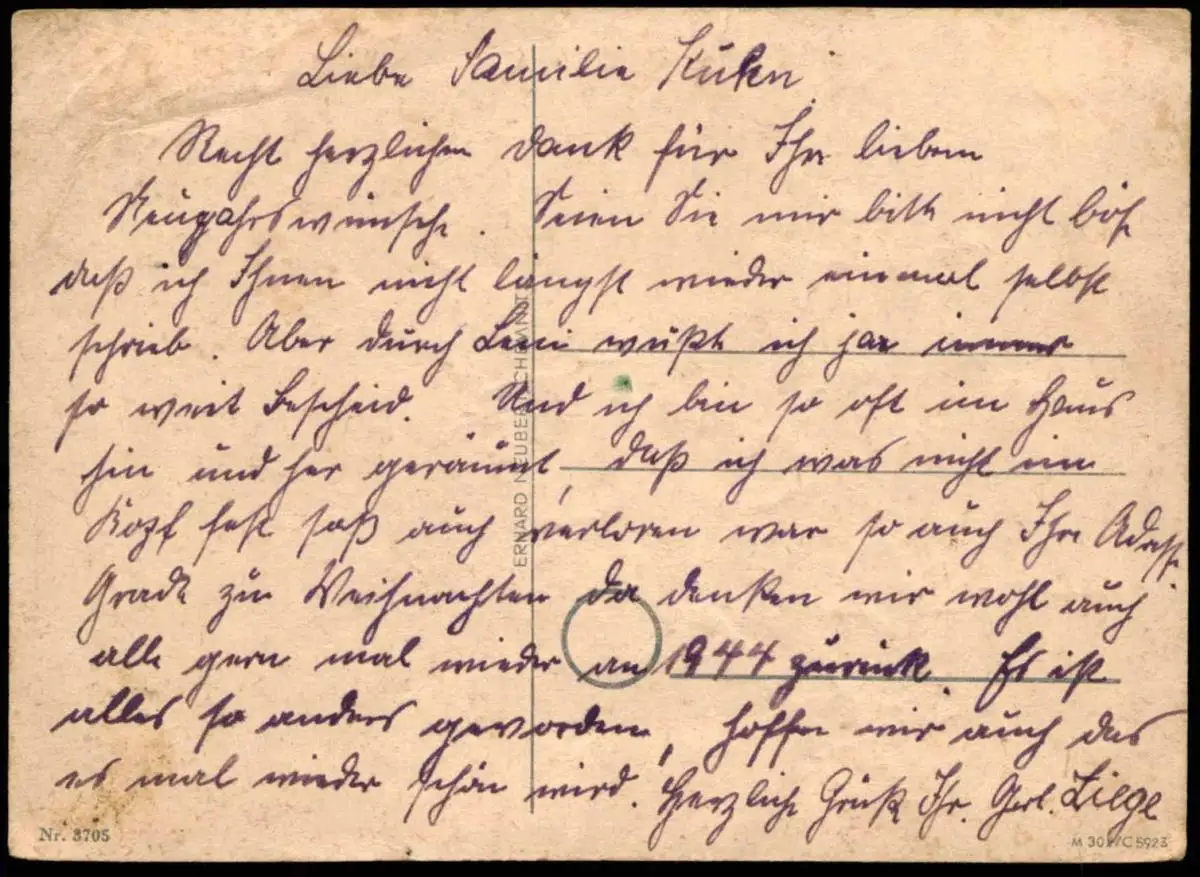 Liebe Familie Kuhn
Recht herzlichen Dank für Ihre lieben
Neujahrswünsche. Seien Sie mir bitte nicht bös
daß ich Ihnen nicht längst wieder einmal selbst
schrieb. Aber durch Leni wußte ich ja immer
so weit Bescheid. Und ich bin so oft im Haus
hin und her geräumt, daß ich was nicht im
Kopf fest saß auch verloren war so auch Ihre Adresse.
Grade zu Weihnachten da denken wir wohl auch
alle gern mal wieder an 1944 zurück. Es ist
alles so anders geworden, hoffen wir auch das
es mal wieder schön wird. Herzliche Grüße Ihr. Gerl. Liege
ERNARD NEUBERT, CHEMNITZ
Nr. 3705
M 301/C 5923